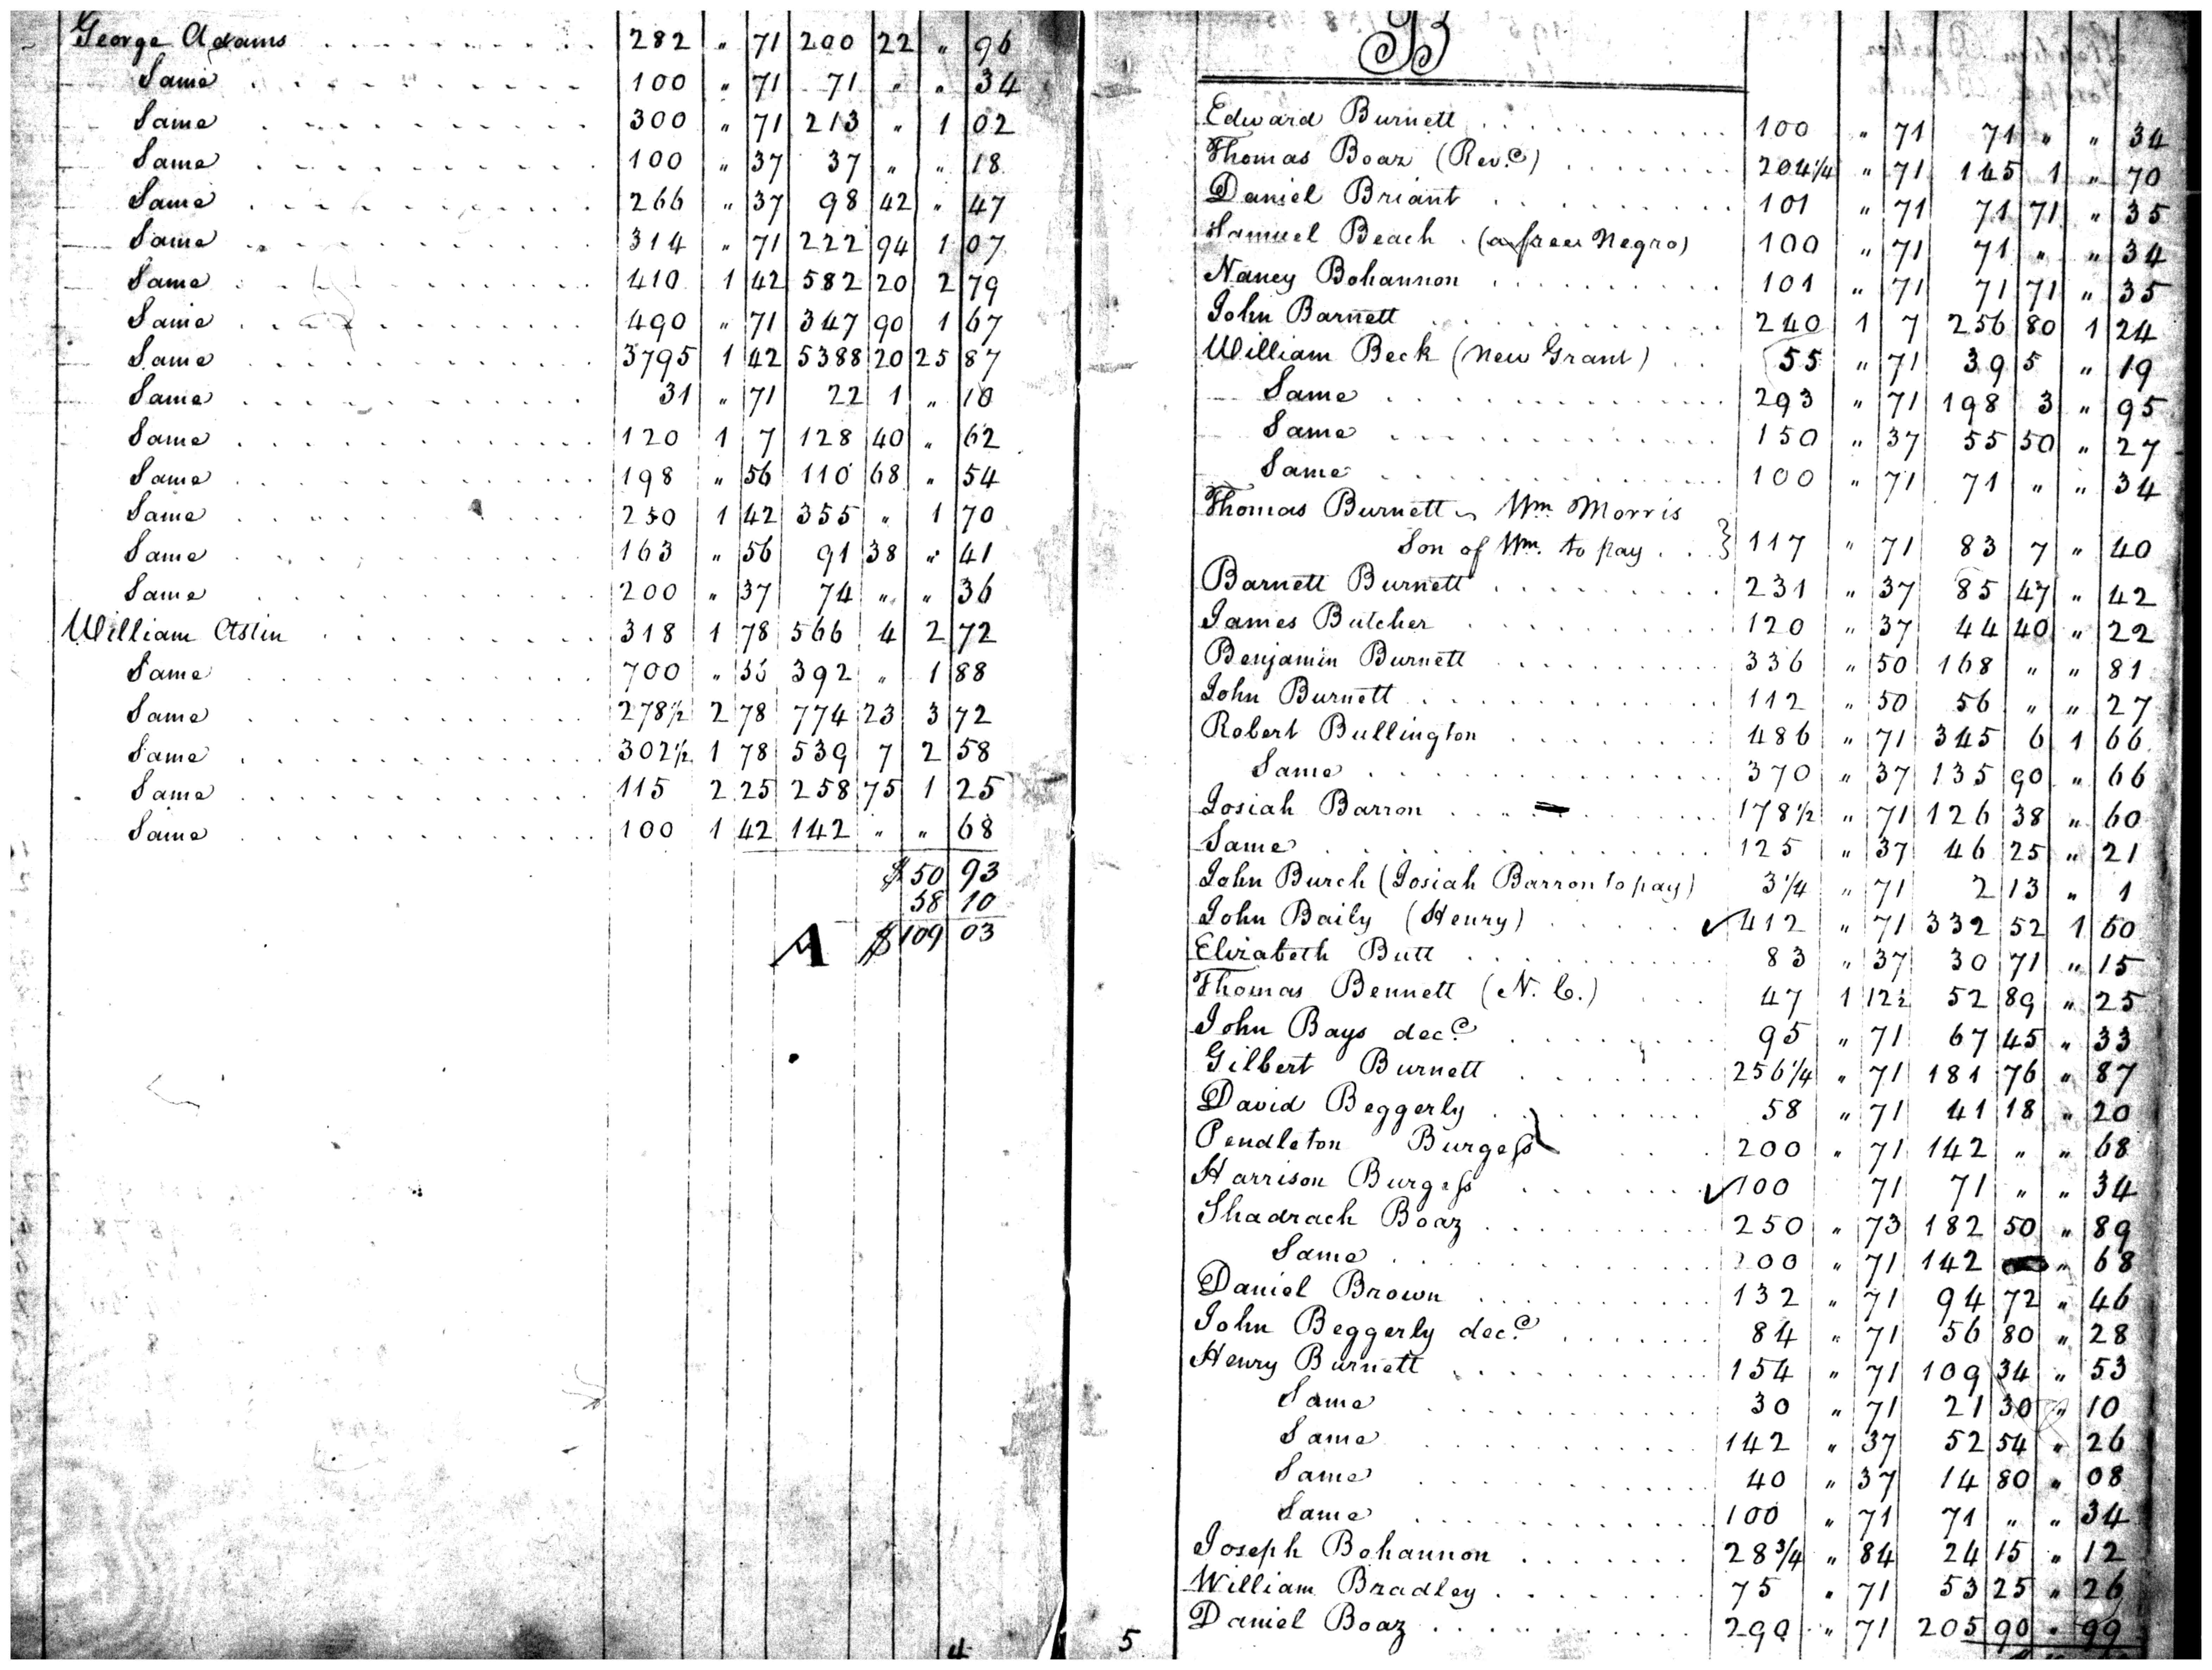 George Adams 282 " 71 200 22 " 96
Same 100 " 71 71 " " 34
Same 300 " 71 213 " 1 02
Same 100 " 37 37 " " 18
Same 266 " 37 98 42 " 47
Same 314 " 71 222 94 1 07
Same 410 1 42 582 20 2 79
Same 490 " 71 347 90 1 67
Same 3795 1 42 5388 20 25 87
Same 31 " 71 22 1 " 10
Same 120 1 7 128 40 " 62
Same 198 " 56 110 68 " 54
Same 250 1 42 355 " 1 70
Same 163 " 56 91 38 " 41
Same 200 " 37 74 " " 36
William Astin 318 1 78 566 4 2 72
Same 700 " 392 " 1 88
Same 278½ 2 78 774 23 3 72
Same 302½ 1 78 539 7 2 58
Same 115 2 25 258 75 1 25
Same 100 1 42 142 " " 68
$50 93
58 10
A $109 03
4
B
Edward Burnett 100 " 71 71 " " 34
Thomas Boaz (Rev.d) 204¼ " 71 145 1 " 70
Daniel Briant 101 " 71 71 71 " 35
Samuel Beach (a free Negro) 100 " 71 71 " " 34
Nancy Bohannon 101 " 71 71 71 " 35
John Barnett 240 1 7 256 80 1 24
William Beck (New Grant) 55 " 71 39 5 " 19
Same 293 " 71 198 3 " 95
Same 150 " 37 55 50 " 27
Same 100 " 71 71 " " 34
Thomas Burnett Wm. Morris
Son of Wm. to pay } 117 " 71 83 7 " 40
Barnett Burnett 231 " 37 85 47 " 42
James Butcher 120 " 37 44 40 " 22
Benjamin Burnett 336 " 50 168 " " 81
John Burnett 112 " 50 56 " " 27
Robert Bullington 486 " 71 345 6 1 66
Same 370 " 37 135 90 " 66
Josiah Barron 178½ " 71 126 38 " 60
Same 125 " 37 46 25 " 21
John Burch (Josiah Barron to pay) 3¼ " 71 2 13 " 1
John Baily (Henry) ✓ 412 " 71 332 52 1 60
Elizabeth Butt 83 " 37 30 71 " 15
Thomas Bennett (N. C.) 47 1 12½ 52 89 " 25
John Bays dec.d 95 " 71 67 45 " 33
Gilbert Burnett 256¼ " 71 181 76 " 87
David Beggerly 58 " 71 41 18 " 20
Pendleton Burgess 200 " 71 142 " " 68
Harrison Burgess ✓ 100 71 71 " " 34
Shadrach Boaz 250 " 73 182 50 " 89
Same 200 " 71 142 " 68
Daniel Brown 132 " 71 94 72 " 46
John Beggerly dec.d 84 " 71 56 80 " 28
Henry Burnett 154 " 71 109 34 " 53
Same 30 " 71 21 30 " 10
Same 142 " 37 52 54 " 26
Same 40 " 37 14 80 " 08
Same 100 " 71 71 " " 34
Joseph Bohannon 28¾ " 84 24 15 " 12
William Bradley 75 " 71 53 25 " 26
Daniel Boaz 290 " 71 205 90 " 99
5